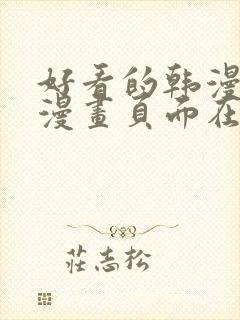 好看的韩漫
漫畫頁面在
莊志松